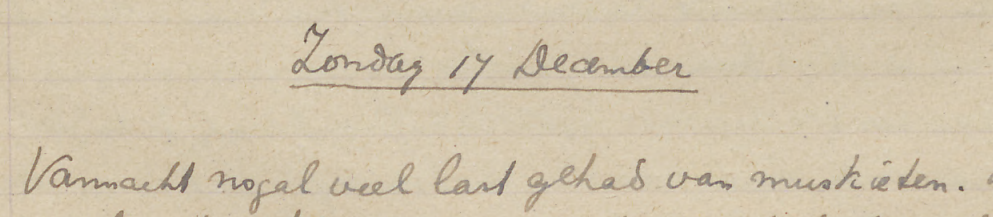 Zondag 17 December
Vannacht nogal veel last gehad van muskieten.